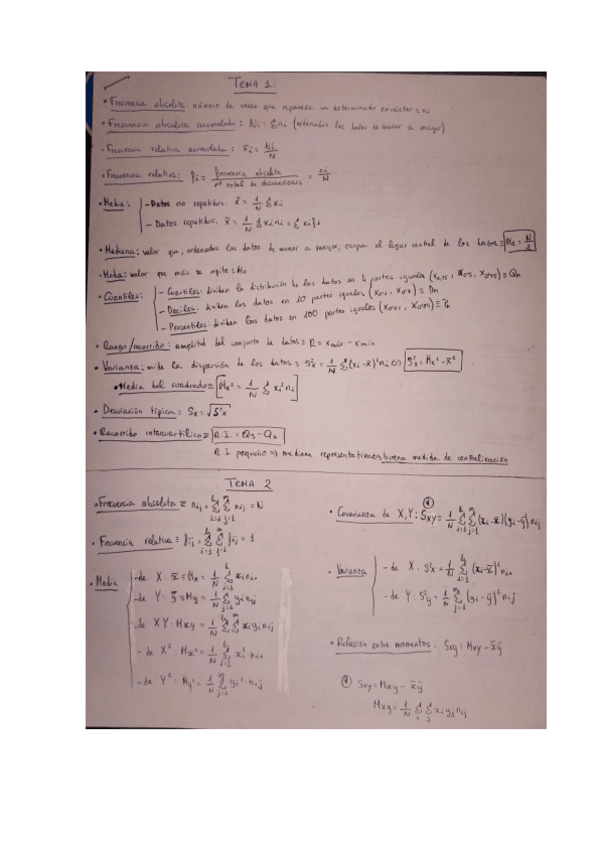 TEMA 1:
• Frecuencia absoluta: número de veces que aparece un determinado carácter ≡ n
• Frecuencia absoluta acumulada: Ni: Σni (ordenados los datos de menor a mayor)
• Frecuencia relativa acumulada: Fi = Ni/N
• Frecuencia relativa: fi = frecuencia absoluta / nº total de = ni/N
• Media:
- Datos no repetidos: x̄ = 1/N Σ xi
- Datos repetidos: x̄ = 1/N Σ xi ni = Σ xi fi
• Mediana: valor que, ordenados los datos de menor a mayor, ocupa el lugar central de los datos ≡ Me = N/2
• Moda: valor que más se repite ≡ Mo
• Cuantiles:
- Cuartiles: dividen la distribución de los datos en 4 partes iguales (x0'25, x0'5, x0'75) ≡ Qn
- Deciles: dividen los datos en 10 partes iguales (x0'1, x0'7) ≡ Dn
- Percentiles: dividen los datos en 100 partes iguales (x0'01, x0'99) ≡ Pn
• Rango/recorrido: amplitud del conjunto de datos ≡ R = xmáx - xmín
• Varianza: mide la dispersión de los datos ≡ S²x = 1/N Σ(xi - x̄)² ni ⇔ S²x = Mx² - x̄²
• Media del cuadrado ≡ Mx² = 1/N Σ xi² ni
• Desviación típica: Sx = √S²x
• Recorrido intercuartílico ≡ R.I. = Q3 - Q1
R.I pequeño ⇒ mediana representativa buena medida de centralización
TEMA 2
• Frecuencia absoluta ≡ nij = Σ Σ nij = N
• Frecuencia relativa ≡ fij = Σ Σ fij = 1
• Media
- de X: x̄ = Mx = 1/N Σ xi ni.
- de Y: ȳ = My = 1/N Σ yi nij
- de XY: Mxy = 1/N Σ Σ xi yi nij
- de X²: Mx² = 1/N Σ xi² ni.
- de Y²: My² = 1/N Σ yi² n.j
• Covarianza de X,Y: Sxy = 1/N Σ Σ (xi - x̄)(yi - ȳ) nij
• Varianza
- de X: S²x = 1/N Σ (xi - x̄)² ni.
- de Y: S²y = 1/N Σ (yi - ȳ)² n.j
• Relación entre momentos: Sxy = Mxy - x̄ȳ
Sxy = Mxy - x̄ȳ
Mxy = 1/N Σ Σ xi yj nij